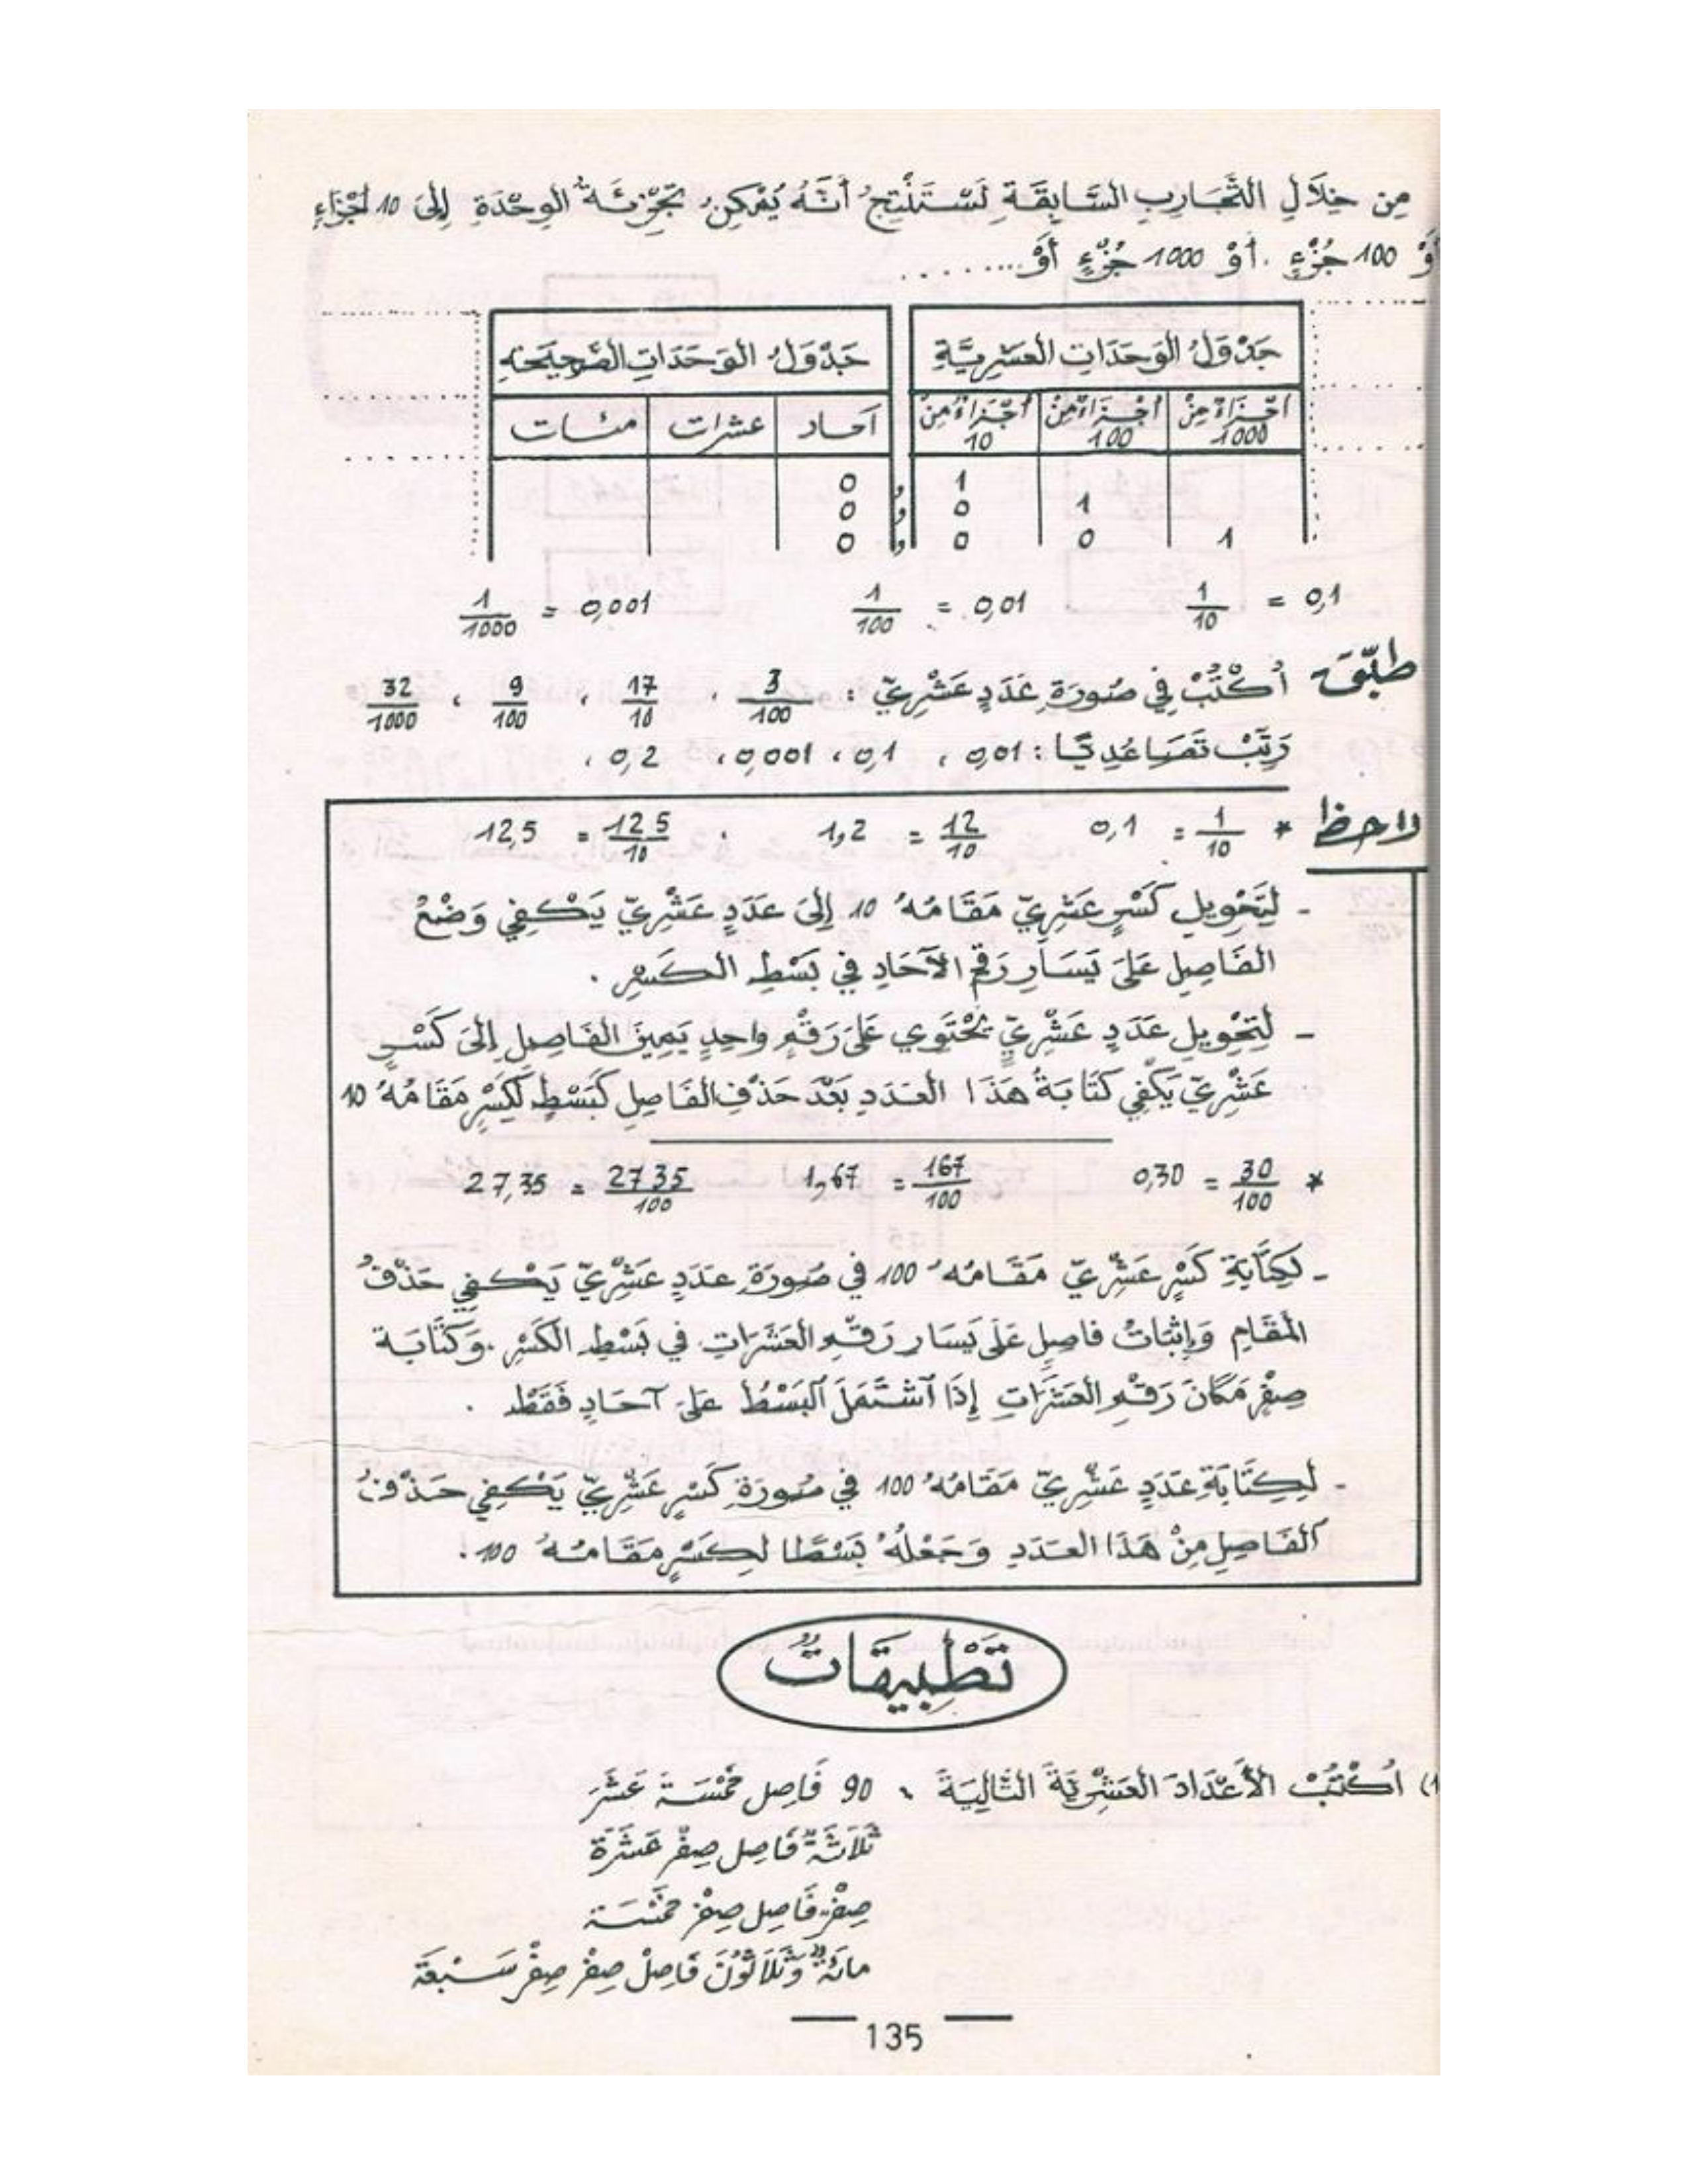 مِن خِلَالِ التَّجَارِبِ السَّابِقَةِ نَسْتَنْتِجُ أَنَّهُ يُمْكِنُ تَجْزِئَةُ الوِحْدَةِ إِلَى 10 أَجْزَاءٍ
أَوْ 100 جُزْءٍ . أَوْ 1000 جُزْءٍ أَوْ ........
جَدْوَلُ الوَحَدَاتِ العَشْرِيَّةِ جَدْوَلُ الوَحَدَاتِ الصَّحِيحَةِ
أَجْزَاءٌ مِنْ 1000 أَجْزَاءٌ مِنْ 100 أَجْزَاءٌ مِنْ 10 آحاد عشرات مئات
0 , 1
0 , 0 1
0 , 0 0 1
1/10 = 0,1 1/100 = 0,01 1/1000 = 0,001
طبّق أُكْتُبْ فِي صُورَةِ عَدَدٍ عَشْرِيّ : 3/100 ، 17/10 ، 9/100 ، 32/1000
رَتِّبْ تَصَاعُدِيًّا : 0,01 ، 0,1 ، 0,001 ، 0,2 ،
لاحظ * 1/10 = 0,1 12/10 = 1,2 . 125/10 = 12,5
- لِتَحْوِيلِ كَسْرٍ عَشْرِيّ مَقَامُهُ 10 إِلَى عَدَدٍ عَشْرِيّ يَكْفِي وَضْعُ
الفَاصِلِ عَلَى يَسَارِ رَقْمِ الآحَادِ فِي بَسْطِ الكَسْرِ .
- لِتَحْوِيلِ عَدَدٍ عَشْرِيٍّ يَحْتَوِي عَلَى رَقْمٍ وَاحِدٍ يَمِينَ الفَاصِلِ إِلَى كَسْرٍ
عَشْرِيّ يَكْفِي كِتَابَةُ هَذَا العَدَدِ بَعْدَ حَذْفِ الفَاصِلِ كَبَسْطٍ لِكَسْرٍ مَقَامُهُ 10
* 30/100 = 0,30 167/100 = 1,67 2735/100 = 27,35
- لِكِتَابَةِ كَسْرٍ عَشْرِيّ مَقَامُهُ 100 فِي صُورَةِ عَدَدٍ عَشْرِيّ يَكْفِي حَذْفُ
المَقَامِ وَإِثْبَاتُ فاصِلٍ عَلَى يَسَارِ رَقْمِ العَشَرَاتِ فِي بَسْطِ الكَسْرِ . وَكِتَابَة
صِفْرٍ مَكَانَ رَقْمِ العَشَرَاتِ إِذَا آشْتَمَلَ البَسْطُ عَلَى آحَادٍ فَقَطْ .
- لِكِتَابَةِ عَدَدٍ عَشْرِيّ مَقَامُهُ 100 فِي صُورَةِ كَسْرٍ عَشْرِيّ يَكْفِي حَذْفُ
الفَاصِلِ مِنْ هَذَا العَدَدِ وَجَعْلُهُ بَسْطًا لِكَسْرٍ مَقَامُهُ 100 .
تَطْبِيقَاتٌ
1) أُكْتُبْ الأَعْدَادَ العَشْرِيَّةَ التَّالِيَةَ ، 90 فَاصِل خَمْسَةَ عَشَرَ
ثَلَاثَةٌ فَاصِل صِفْر عَشَرَة
صِفْر فَاصِل صِفْر خَمْسَة
مائَةٌ وَثَلَاثُونَ فَاصِلْ صِفْر صِفْر سَبْعَة
135